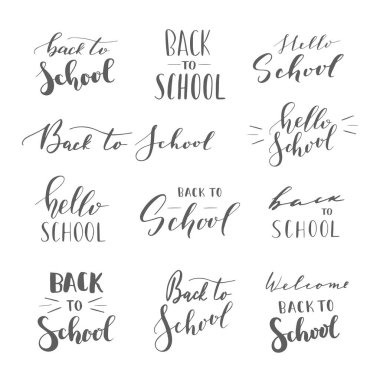 back to
School
BACK
TO
SCHOOL
Hello
School
Back to School
hello
School
hello
SCHOOL
BACK TO
School
back
TO
SCHOOL
BACK
TO
School
Back to
School
Welcome
BACK TO
School